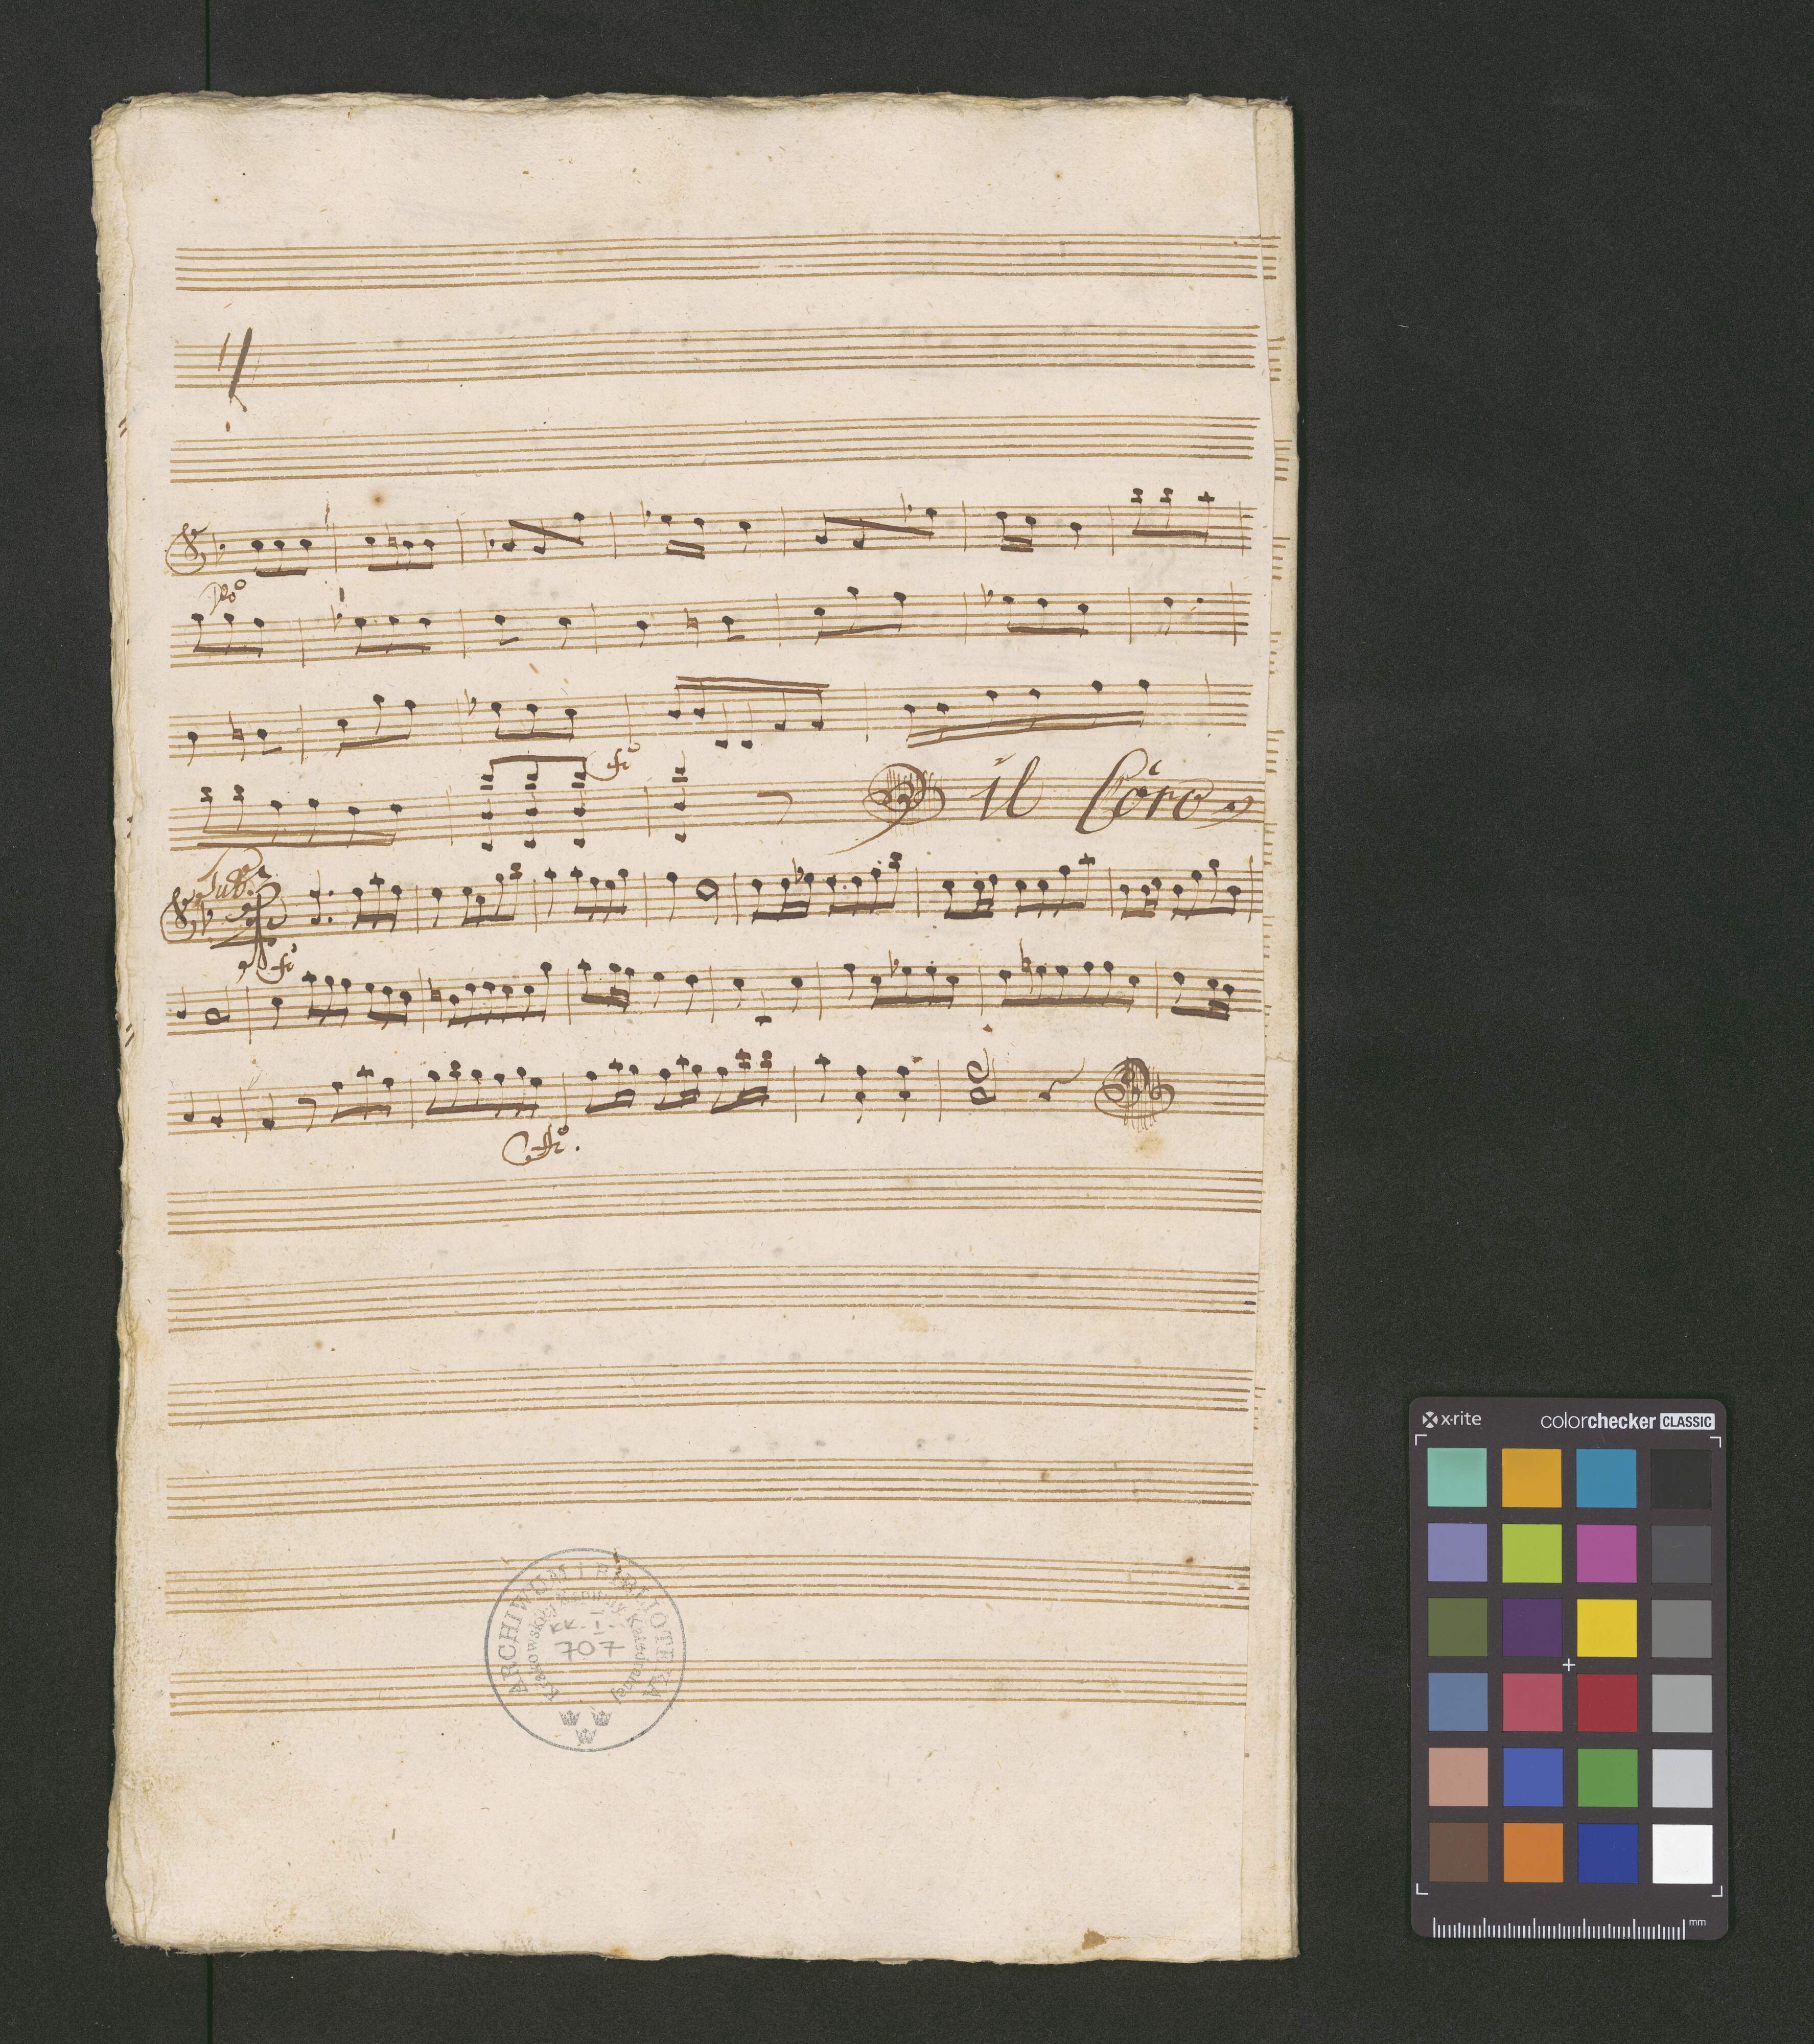 P:o
fe
il Coro
Tutti
fe
fe.
ARCHIWUM I BIBLIOTEKA
Krakowskiej Kapituły Katedralnej
KK. I.
707
x-rite
colorchecker CLASSIC
mm